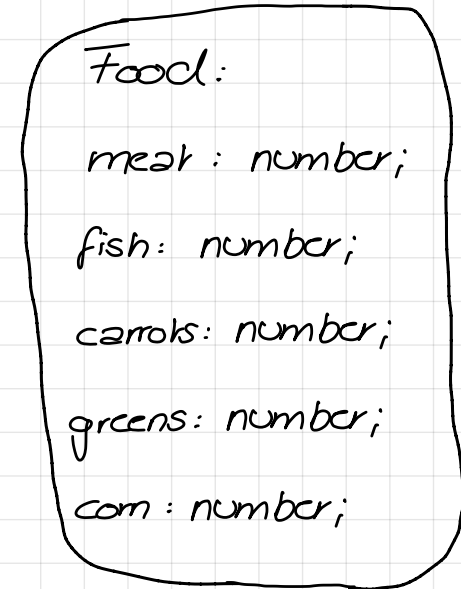 Food:
meat : number;
fish: number;
carrots: number;
greens: number;
corn : number;